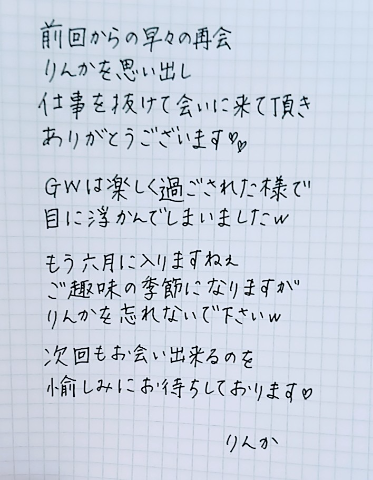 前回からの早々の再会
りんかを思い出し
仕事を抜けて会いに来て頂き
ありがとうございます♡♡
GWは楽しく過ごされた様で
目に浮かんでしまいましたw
もう六月に入りますねぇ
ご趣味の季節になりますが
りんかを忘れないで下さいw
次回もお会い出来るのを
愉しみにお待ちしております♡
りんか